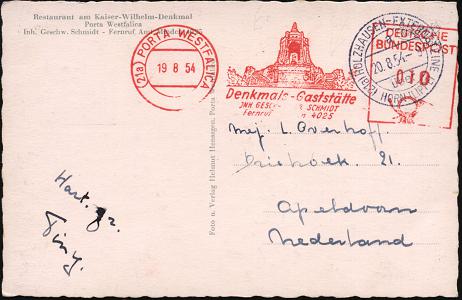 Restaurant am Kaiser-Wilhelm-Denkmal
Porta Westfalica
Inh. Geschw. Schmidt - Fernruf Amt
(21a) PORTA WESTFALICA
19 8 54
Denkmals-Gaststätte
INH. GESCHW. SCHMIDT
Fernruf 4025
(21a) HOLZHAUSEN-EXTERNSTEINE
20.8.54
HORN (LIPPE)
DEUTSCHE
BUNDESPOST
010
Foto u. Verlag Helmut Hensagen, Porta
Mej. L. Overhoff.
21.
Apeldoorn
Nederland
Hart. gr.